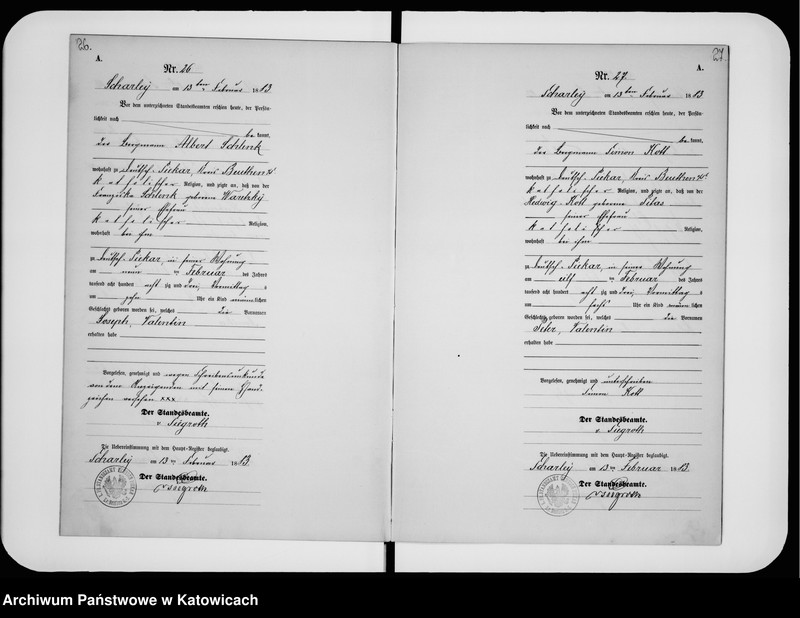 26.
A.
Nr. 26
Scharley am 13ten Februar 1883
Vor dem unterzeichneten Standesbeamten erschien heute, der Persön-
lichkeit nach
be kannt,
der Bergmann Albert Schlenk
wohnhaft zu Deutsch-Piekar, Kreis Beuthen
katholischer Religion, und zeigte an, daß von der
Franziska Schlenk geborene
seiner Ehefrau
katholischer Religion,
wohnhaft bei ihm
zu Deutsch-Piekar, in seiner Wohnung
am neun ten Februar des Jahres
tausend acht hundert acht zig und drei, Vormittag s
um zehn Uhr ein Kind männlichen
Geschlechts geboren worden sei, welches die Vornamen
Joseph, Valentin
erhalten habe
Vorgelesen, genehmigt und wegen Schreibensunkunde
von dem Anzeigenden mit seinem Hand-
zeichen versehen xxx
Der Standesbeamte.
v Siegroth
Die Uebereinstimmung mit dem Haupt-Register beglaubigt.
Scharley am 13ten Februar 1883.
Der Standesbeamte.
v Siegroth
27.
A.
Nr. 27
Scharley am 13ten Februar 1883
Vor dem unterzeichneten Standesbeamten erschien heute, der Persön-
lichkeit nach
be kannt,
der Bergmann Simon Kott
wohnhaft zu Deutsch-Piekar, Kreis Beuthen
katholischer Religion, und zeigte an, daß von der
Hedwig Kott geborene Pilas
seiner Ehefrau
katholischer Religion,
wohnhaft bei ihm
zu Deutsch-Piekar, in seiner Wohnung
am eilf ten Februar des Jahres
tausend acht hundert acht zig und drei, Vormittag s
um sechs Uhr ein Kind männlichen
Geschlechts geboren worden sei, welches die Vornamen
Peter, Valentin
erhalten habe
Vorgelesen, genehmigt und unterschrieben
Simon Kott
Der Standesbeamte.
v Siegroth
Die Uebereinstimmung mit dem Haupt-Register beglaubigt.
Scharley am 13ten Februar 1883.
Der Standesbeamte.
v Siegroth
Archiwum Państwowe w Katowicach